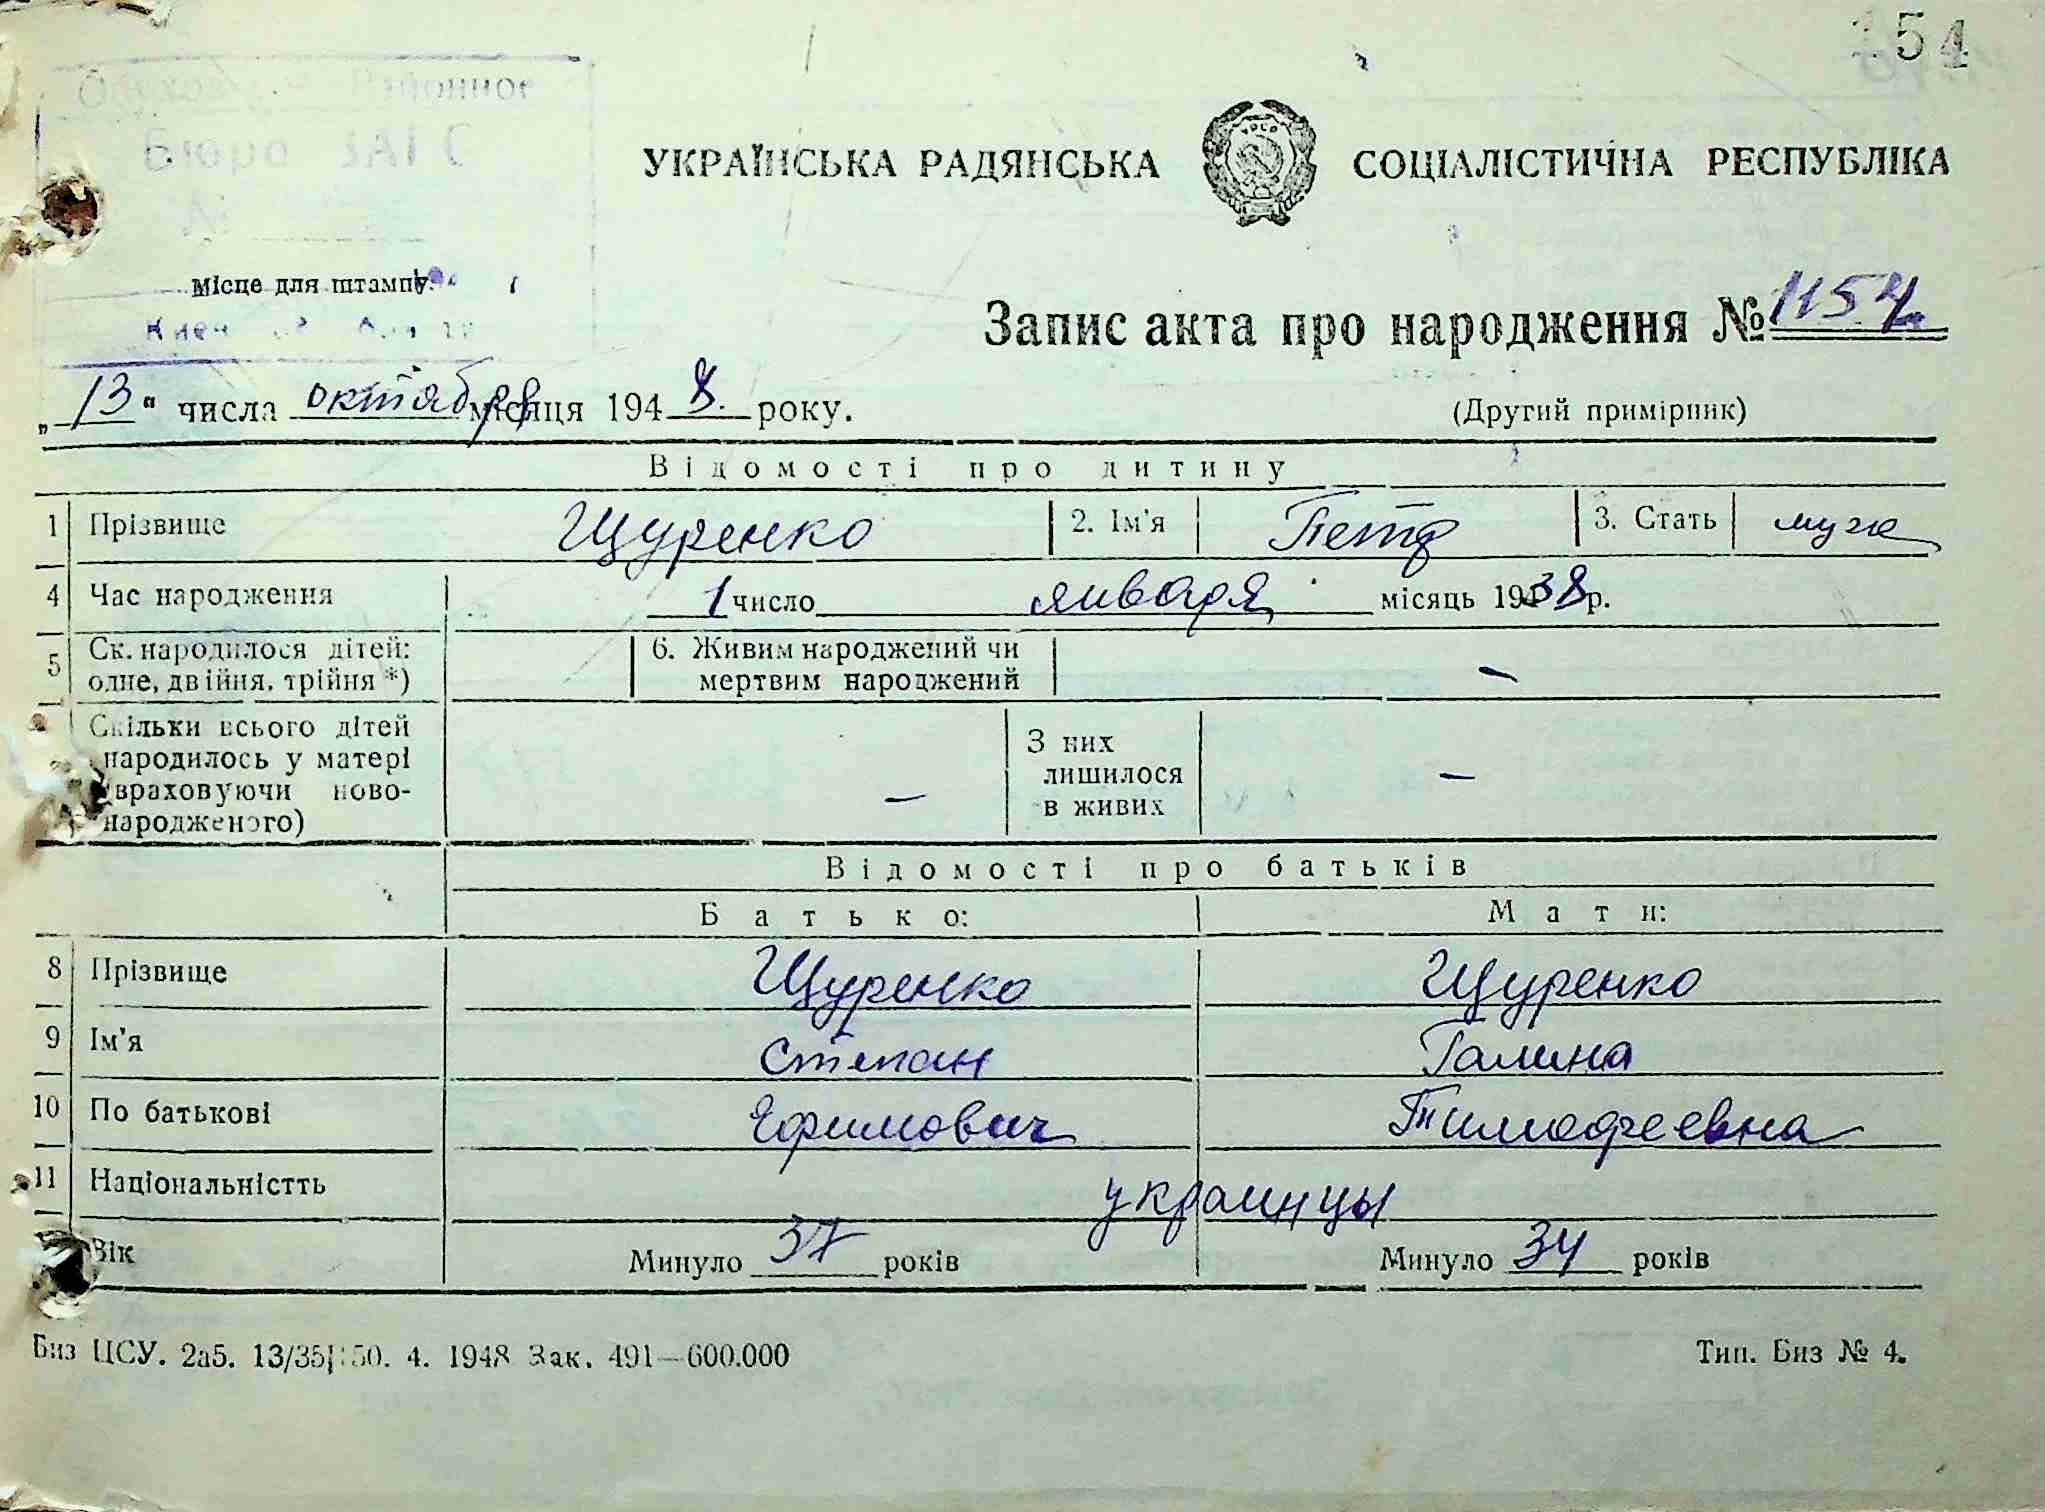 154
Районное
Бюро ЗАГС
УКРАЇНСЬКА РАДЯНСЬКА СОЦІАЛІСТИЧНА РЕСПУБЛІКА
Місце для штампу.
Запис акта про народження № 1154
„13“ числа октября місяця 1948. року.
(Другий примірник)
Відомості про дитину
1 Прізвище Щуренко 2. Ім'я Петр 3. Стать муж
4 Час народження 1 число января місяць 1938 р.
5 Ск. народилося дітей: одне, двійня, трійня *) 6. Живим народжений чи мертвим народжений –
Скільки всього дітей народилось у матері враховуючи ново-народженого) – З них лишилося в живих –
Відомості про батьків
Батько: Мати:
8 Прізвище Щуренко Щуренко
9 Ім'я Степан Галина
10 По батькові Ефимович Тимофеевна
11 Національністть украинцы
Вік Минуло 37 років Минуло 34 років
Биз ЦСУ. 2а5. 13/35 50. 4. 1948 Зак. 491—600.000
Тип. Биз № 4.